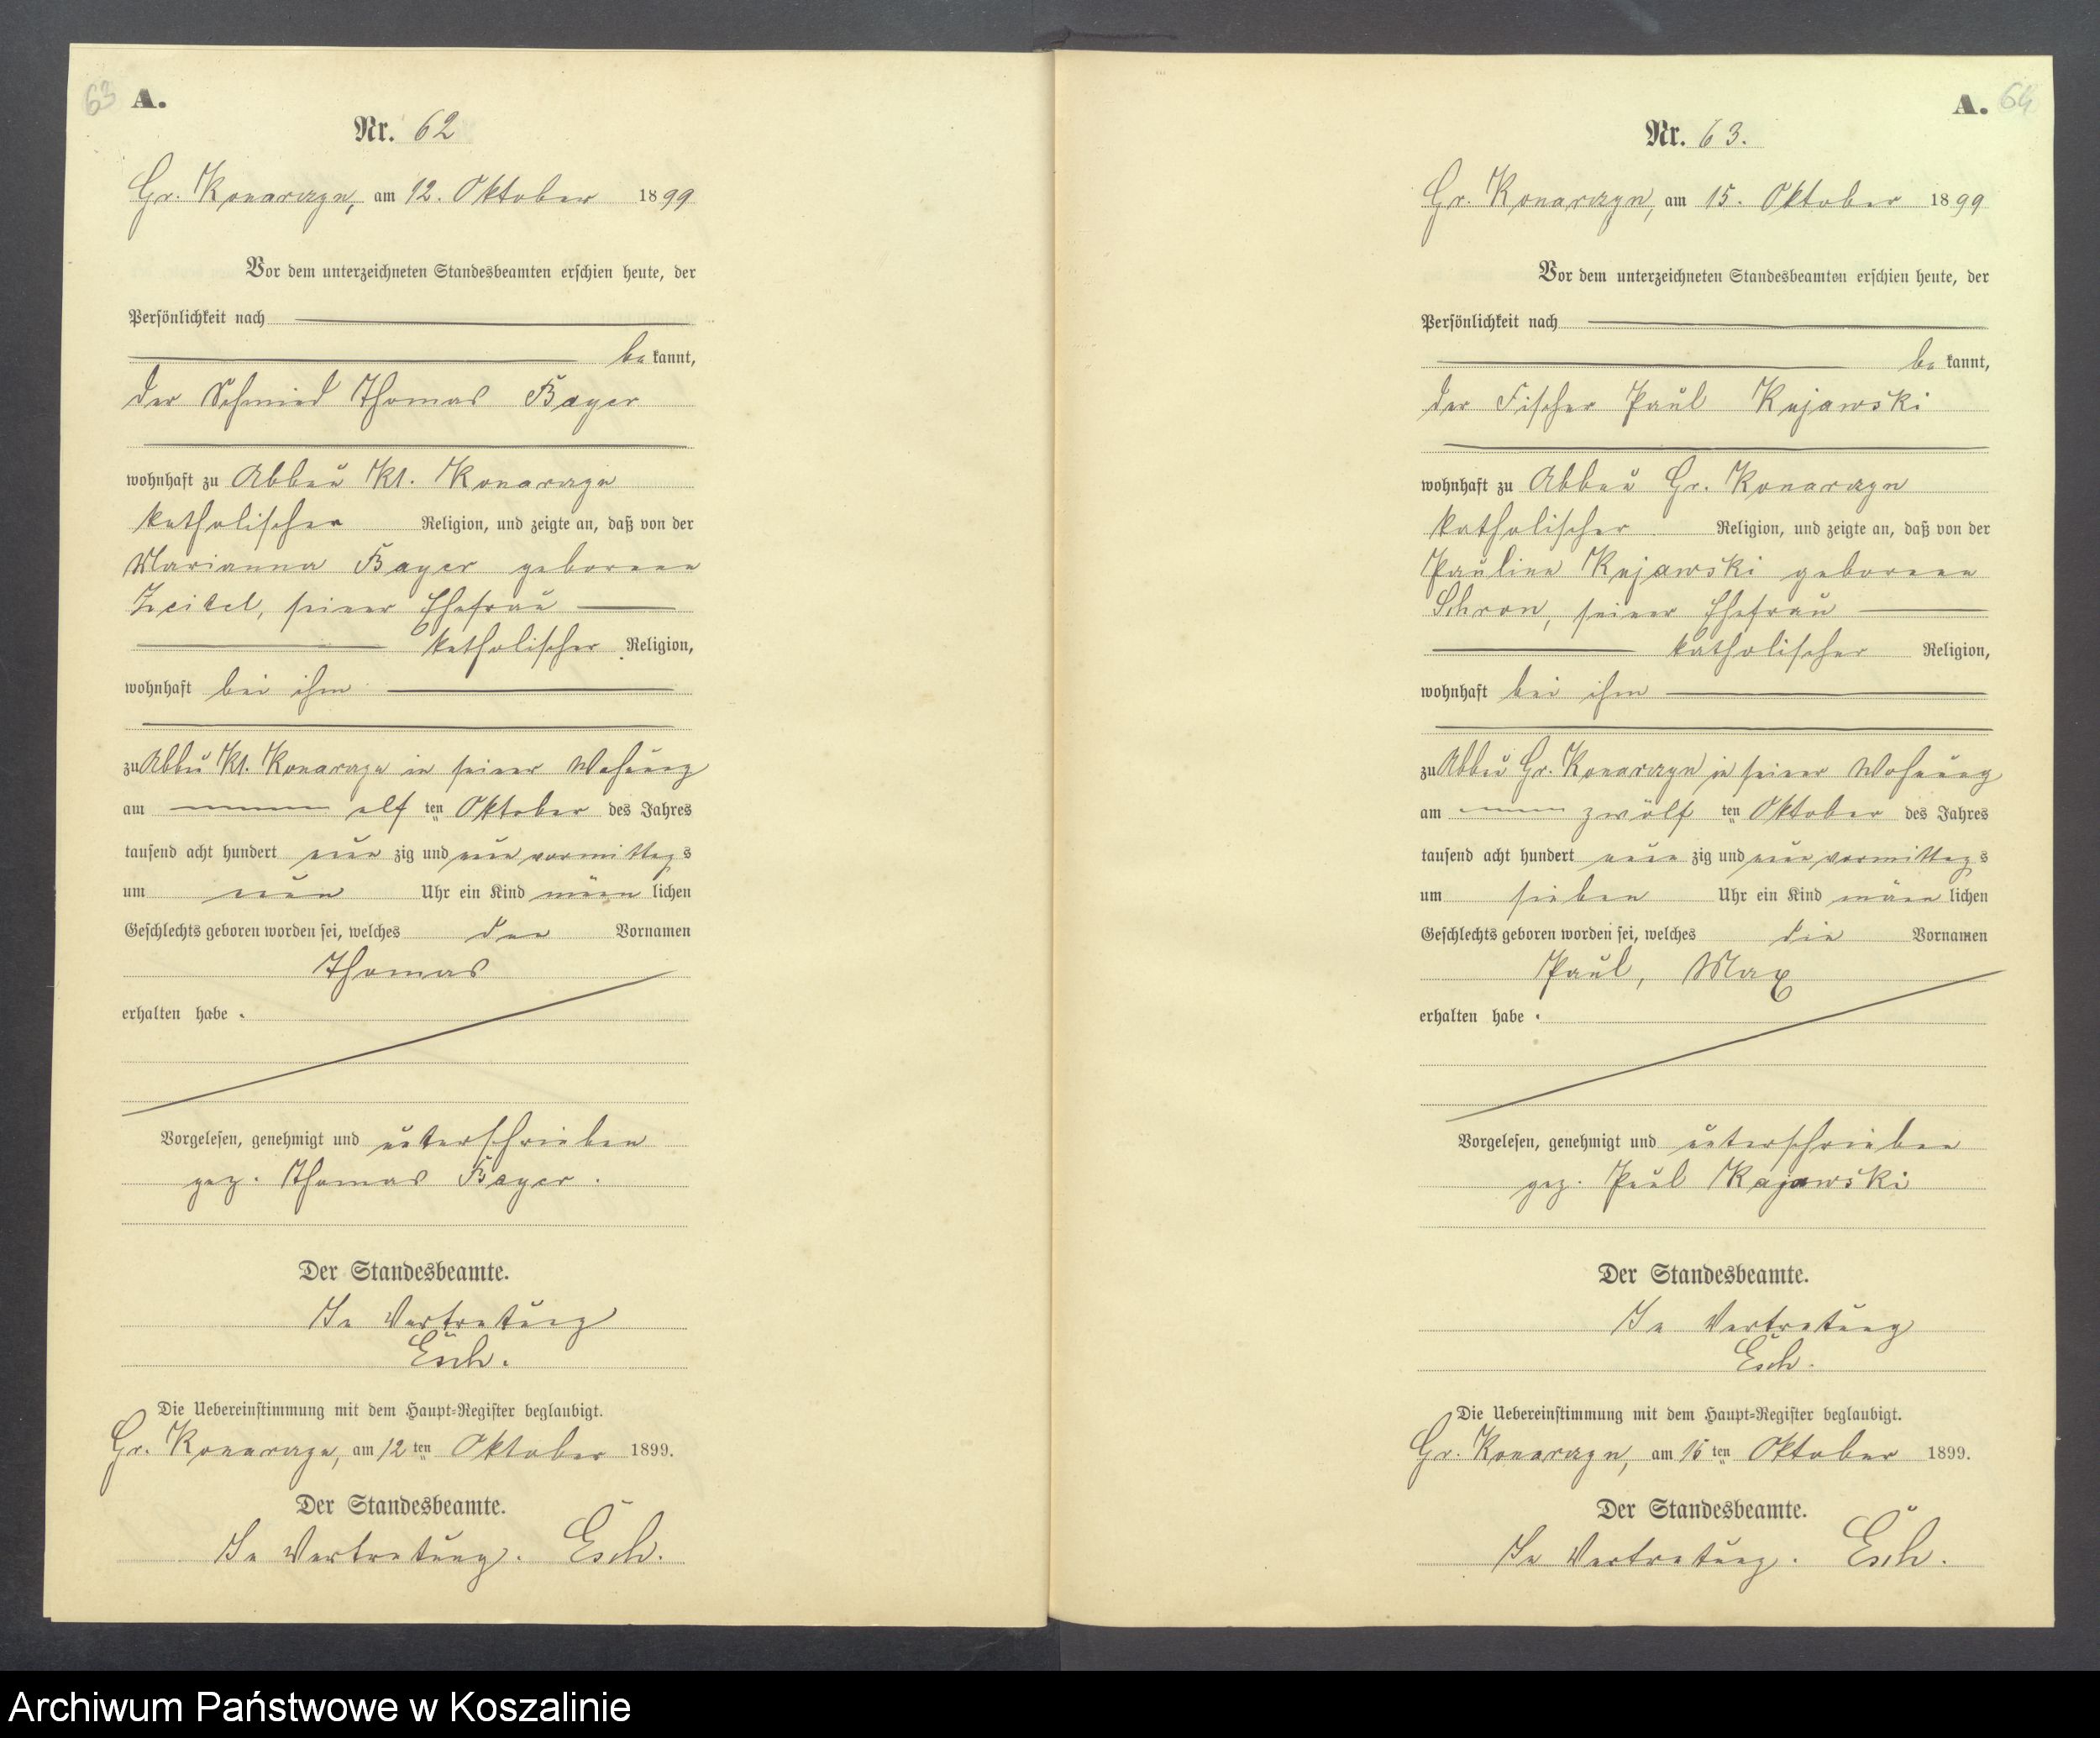 63 A.
Nr. 62
Gr. Konarczyn, am 12. Oktober 1899
Vor dem unterzeichneten Standesbeamten erschien heute, der
Persönlichkeit nach
be kannt,
der Schmied Thomas Bayer
wohnhaft zu Abbau Kl. Konarczyn
katholischer Religion, und zeigte an, daß von der
Marianna Bayer geborene
Zeitel, seiner Ehefrau
katholischer Religion,
wohnhaft bei ihm
zu Abbau Kl. Konarczyn in seiner Wohnung
am elf ten Oktober des Jahres
tausend acht hundert neun zig und neun vormittags
um neun Uhr ein Kind männ lichen
Geschlechts geboren worden sei, welches den Vornamen
Thomas
erhalten habe .
Vorgelesen, genehmigt und unterschrieben
gez. Thomas Bayer.
Der Standesbeamte.
In Vertretung
Esch.
Die Uebereinstimmung mit dem Haupt-Register beglaubigt.
Gr. Konarczyn, am 12 ten Oktober 1899.
Der Standesbeamte.
In Vertretung. Esch.
A. 64
Nr. 63.
Gr. Konarczyn, am 15. Oktober 1899
Vor dem unterzeichneten Standesbeamten erschien heute, der
Persönlichkeit nach
be kannt,
der Fischer Paul Kujawski
wohnhaft zu Abbau Gr. Konarczyn
katholischer Religion, und zeigte an, daß von der
Pauline Kujawski geborene
Schron, seiner Ehefrau
katholischer Religion,
wohnhaft bei ihm
zu Abbau Gr. Konarczyn in seiner Wohnung
am zwölf ten Oktober des Jahres
tausend acht hundert neun zig und neun vormittags
um sieben Uhr ein Kind männ lichen
Geschlechts geboren worden sei, welches die Vornamen
Paul, Max
erhalten habe .
Vorgelesen, genehmigt und unterschrieben
gez. Paul Kajawski
Der Standesbeamte.
In Vertretung
Esch.
Die Uebereinstimmung mit dem Haupt-Register beglaubigt.
Gr. Konarczyn, am 15 ten Oktober 1899.
Der Standesbeamte.
In Vertretung. Esch.
Archiwum Państwowe w Koszalinie